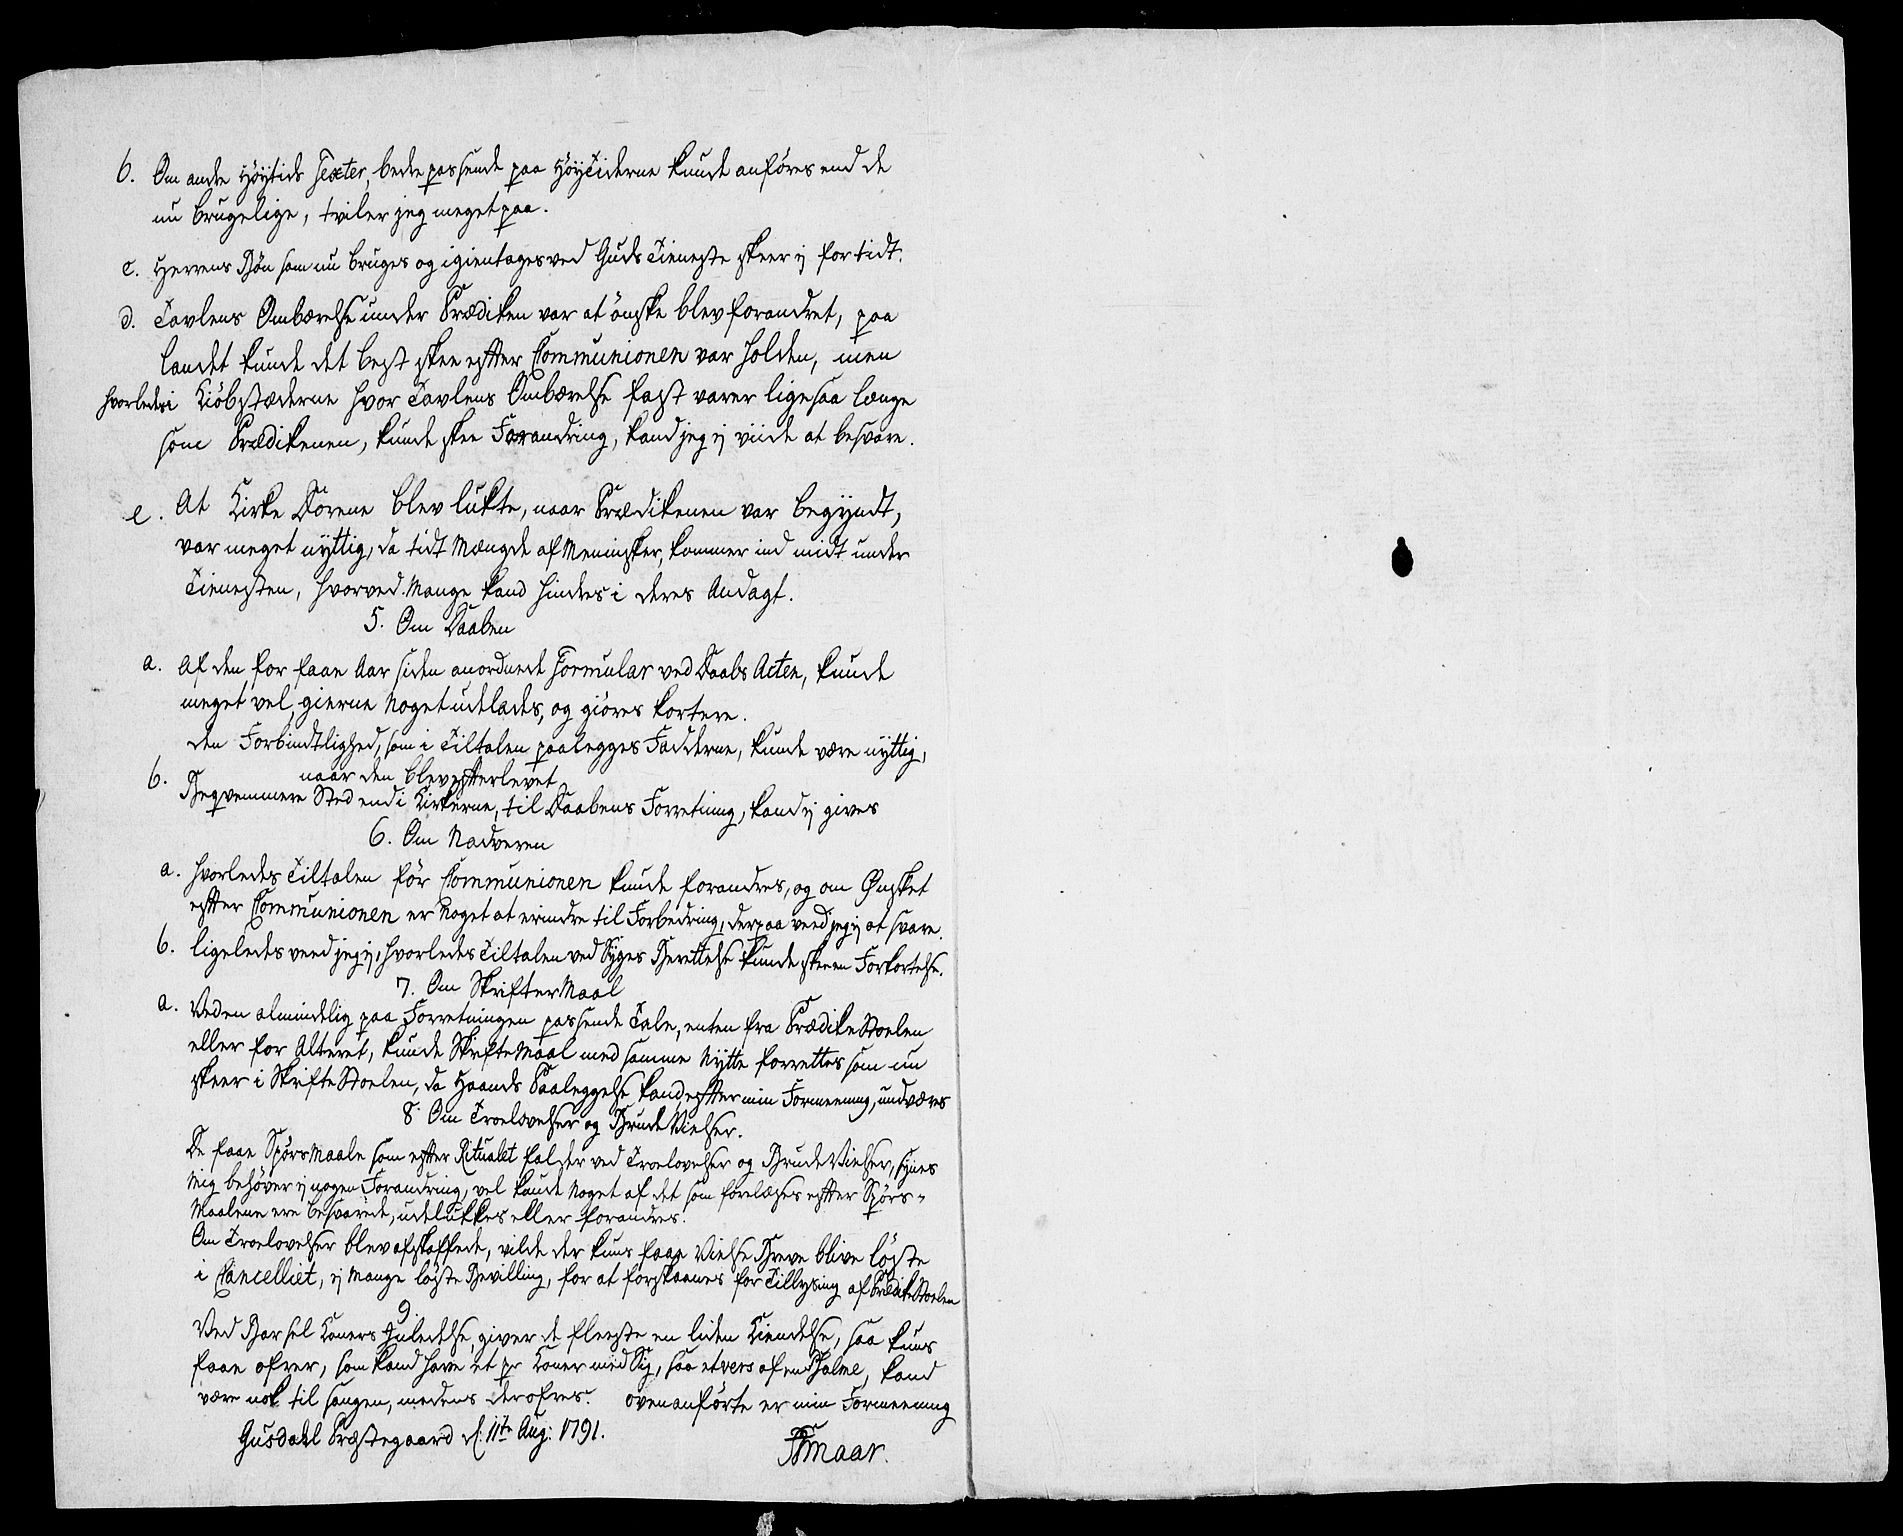 b. Om andre Høytids Texter, bedre passende paa Høytiderne kunde anføres end de
nu brugelige, tviler jeg meget paa.
c. Herrens Bøn som nu bruges og igientages ved Guds Tieneste skeer ej for tidt.
d. Tavlens Ombærelse under Prædiken var at ønske blev forandret, paa
Landet kunde det best skee efter Communionen var holden, men
hvorledes i Kiøbstæderne hvor Tavlens Ombærelse fast varer ligesaa længe
som Prædikenen, kunde skee Forandring, kand jeg ej viide at besvare.
e. At Kirke Dørene blev lukte, naar Prædikenen var begyndt,
var meget nyttig, da tidt Mængde af Mennisker, kommer ind midt under
Tienesten, hvorved Mange kand hindres i deres Andagt.
5. Om Daaben
a. Af den for faae Aar siden anordnede Formular ved Daabs Acten, kunde
meget vel, gierne Noget udelades, og giøres kortere.
den Forbindtlighed, som i Tiltalen paalegges Fadderne, kunde være nyttig,
naar den blev efterlevet
b. Beqvemmere Sted end i Kirkerne, til Daabens Forretning, kand ej gives
6. Om Nadveren
a. hvorledes Tiltalen før Communionen kunde forandres, og om Ønsket
efter Communionen er Noget at erindre til Forbedring, derpaa veed jeg ej at svare.
b. ligeledes veed jeg ej, hvorledes Tiltalen ved Syges Berettelse kunde skee en Forkortelse.
7. Om Skriftermaal
a. Ved en almindelig paa Forretningen passende Tale, enten fra Prædike Stoelen
eller for Alteret, kunde Skriftemaal med samme Nytte forrettes som nu
skeer i Skrifte Stoelen, da Haands Paaleggelse kand efter min Formeening, undværes
8. Om Troelovelser og Brude Vielser.
De faae Spørsmaale som efter Ritualet falder ved Troelovelser og Brude Vielser, synes
Mig behøver ej nogen Forandring, vel kunde Noget af det som forelæses efter Spørs=
Maalene ere besvarede, udelukkes eller forandres.
Om Troelovelser blev afskaffede, vilde der kuns faae Vielse Breve blive løste
i Cancelliet, ej Mange løste Bevilling, for at forskaanes for Tillysing af Prædike Stoelen
9.
Ved Barsel Koners Indledelse, giver de fleeste en liden Kiendelse, saa kuns
faae ofrer, som kand have et pr Koner med Sig, saa et vers af en Psalme, kand
være nok til sangen, medens der ofres. ovenanførte er min Formeening
Gusdahl Præstegaard d: 11te Aug: 1791.
Smaar.